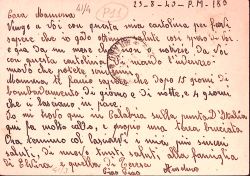 23-8-43-P.M. 180
Cara Mamma
Vengo a Voi con questa mia cartolina per farvi
sapere che io godo ottima salute così spero di voi
e già da un mese che non ò notizie da voi
con questa cartolina vi mando l'indirizzo
Mamma, ti faccio sapere che dopo 15 giorni di
bombardamento di giorno e di notte, e 4 giorni
che ci lasciano in pace
Io mi trovo qui in Calabria sulla punta D'Italia
qui fa molto caldo, e proprio una terra bruciata
Ora termino col
saluti, di nuovo tanti saluti alla famiglia
di Elvira, e quella di Teresa
Ciao Ciao